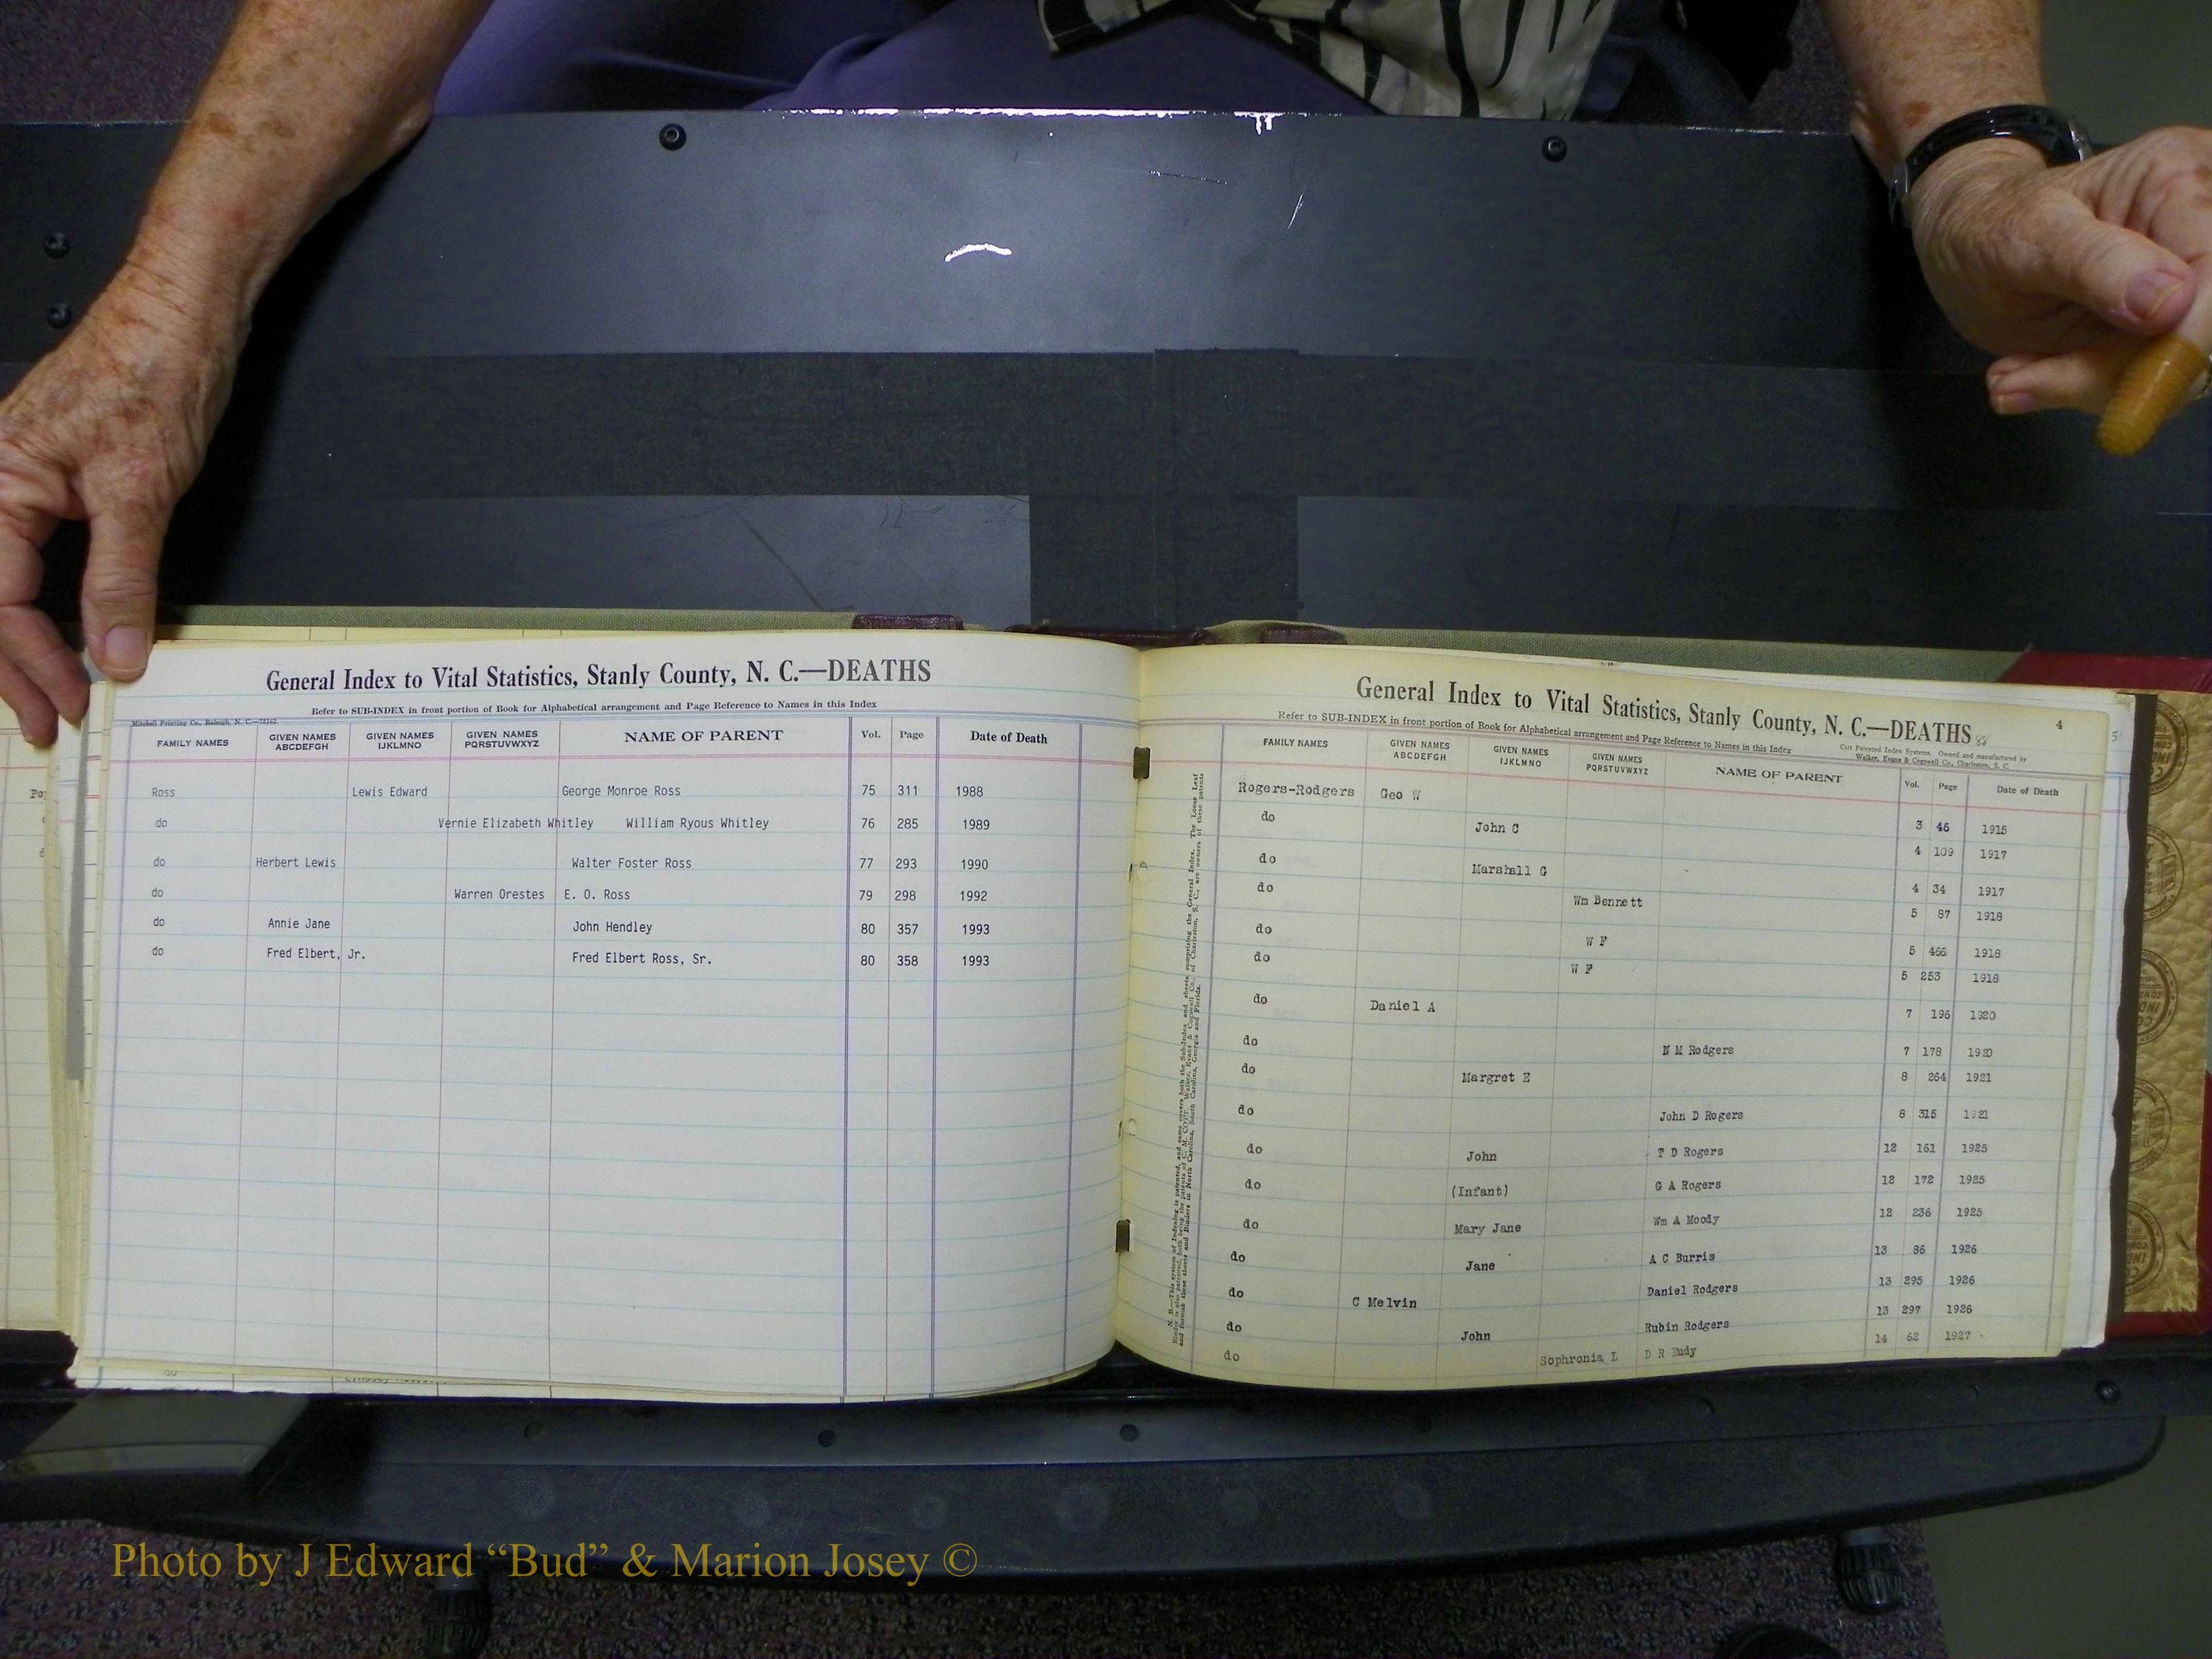 General Index to Vital Statistics, Stanly County, N. C.—DEATHS
Refer to SUB-INDEX in front portion of Book for Alphabetical arrangement and Page Reference to Names in this Index
Mitchell Printing Co., Raleigh, N. C.
FAMILY NAMES GIVEN NAMES ABCDEFGH GIVEN NAMES IJKLMNO GIVEN NAMES PQRSTUVWXYZ NAME OF PARENT Vol. Page Date of Death
Ross Lewis Edward George Monroe Ross 75 311 1988
do Vernie Elizabeth Whitley William Ryous Whitley 76 285 1989
do Herbert Lewis Walter Foster Ross 77 293 1990
do Warren Orestes E. O. Ross 79 298 1992
do Annie Jane John Hendley 80 357 1993
do Fred Elbert, Jr. Fred Elbert Ross, Sr. 80 358 1993
General Index to Vital Statistics, Stanly County, N. C.—DEATHS 4
Refer to SUB-INDEX in front portion of Book for Alphabetical arrangement and Page Reference to Names in this Index
Cott Patented Index Systems. Owned and manufactured by
Walker, Evans & Cogswell Co., Charleston, S. C.
FAMILY NAMES GIVEN NAMES ABCDEFGH GIVEN NAMES IJKLMNO GIVEN NAMES PQRSTUVWXYZ NAME OF PARENT Vol. Page Date of Death
Rogers-Rodgers Geo W 3 46 1915
do John C 4 109 1917
do Marshall G 4 34 1917
do Wm Bennett 5 87 1918
do W F 5 466 1918
do W F 5 253 1918
do Daniel A 7 196 1920
do N M Rodgers 7 178 1920
do Margret E 8 264 1921
do John D Rogers 8 315 1921
do John T D Rogers 12 161 1925
do (Infant) G A Rogers 12 172 1925
do Mary Jane Wm A Moody 12 236 1925
do Jane A C Burris 13 86 1926
do C Melvin Daniel Rodgers 13 295 1926
do John Rubin Rodgers 13 297 1926
do Sophronia L D R Eudy 14 62 1927
Photo by J Edward “Bud” & Marion Josey ©